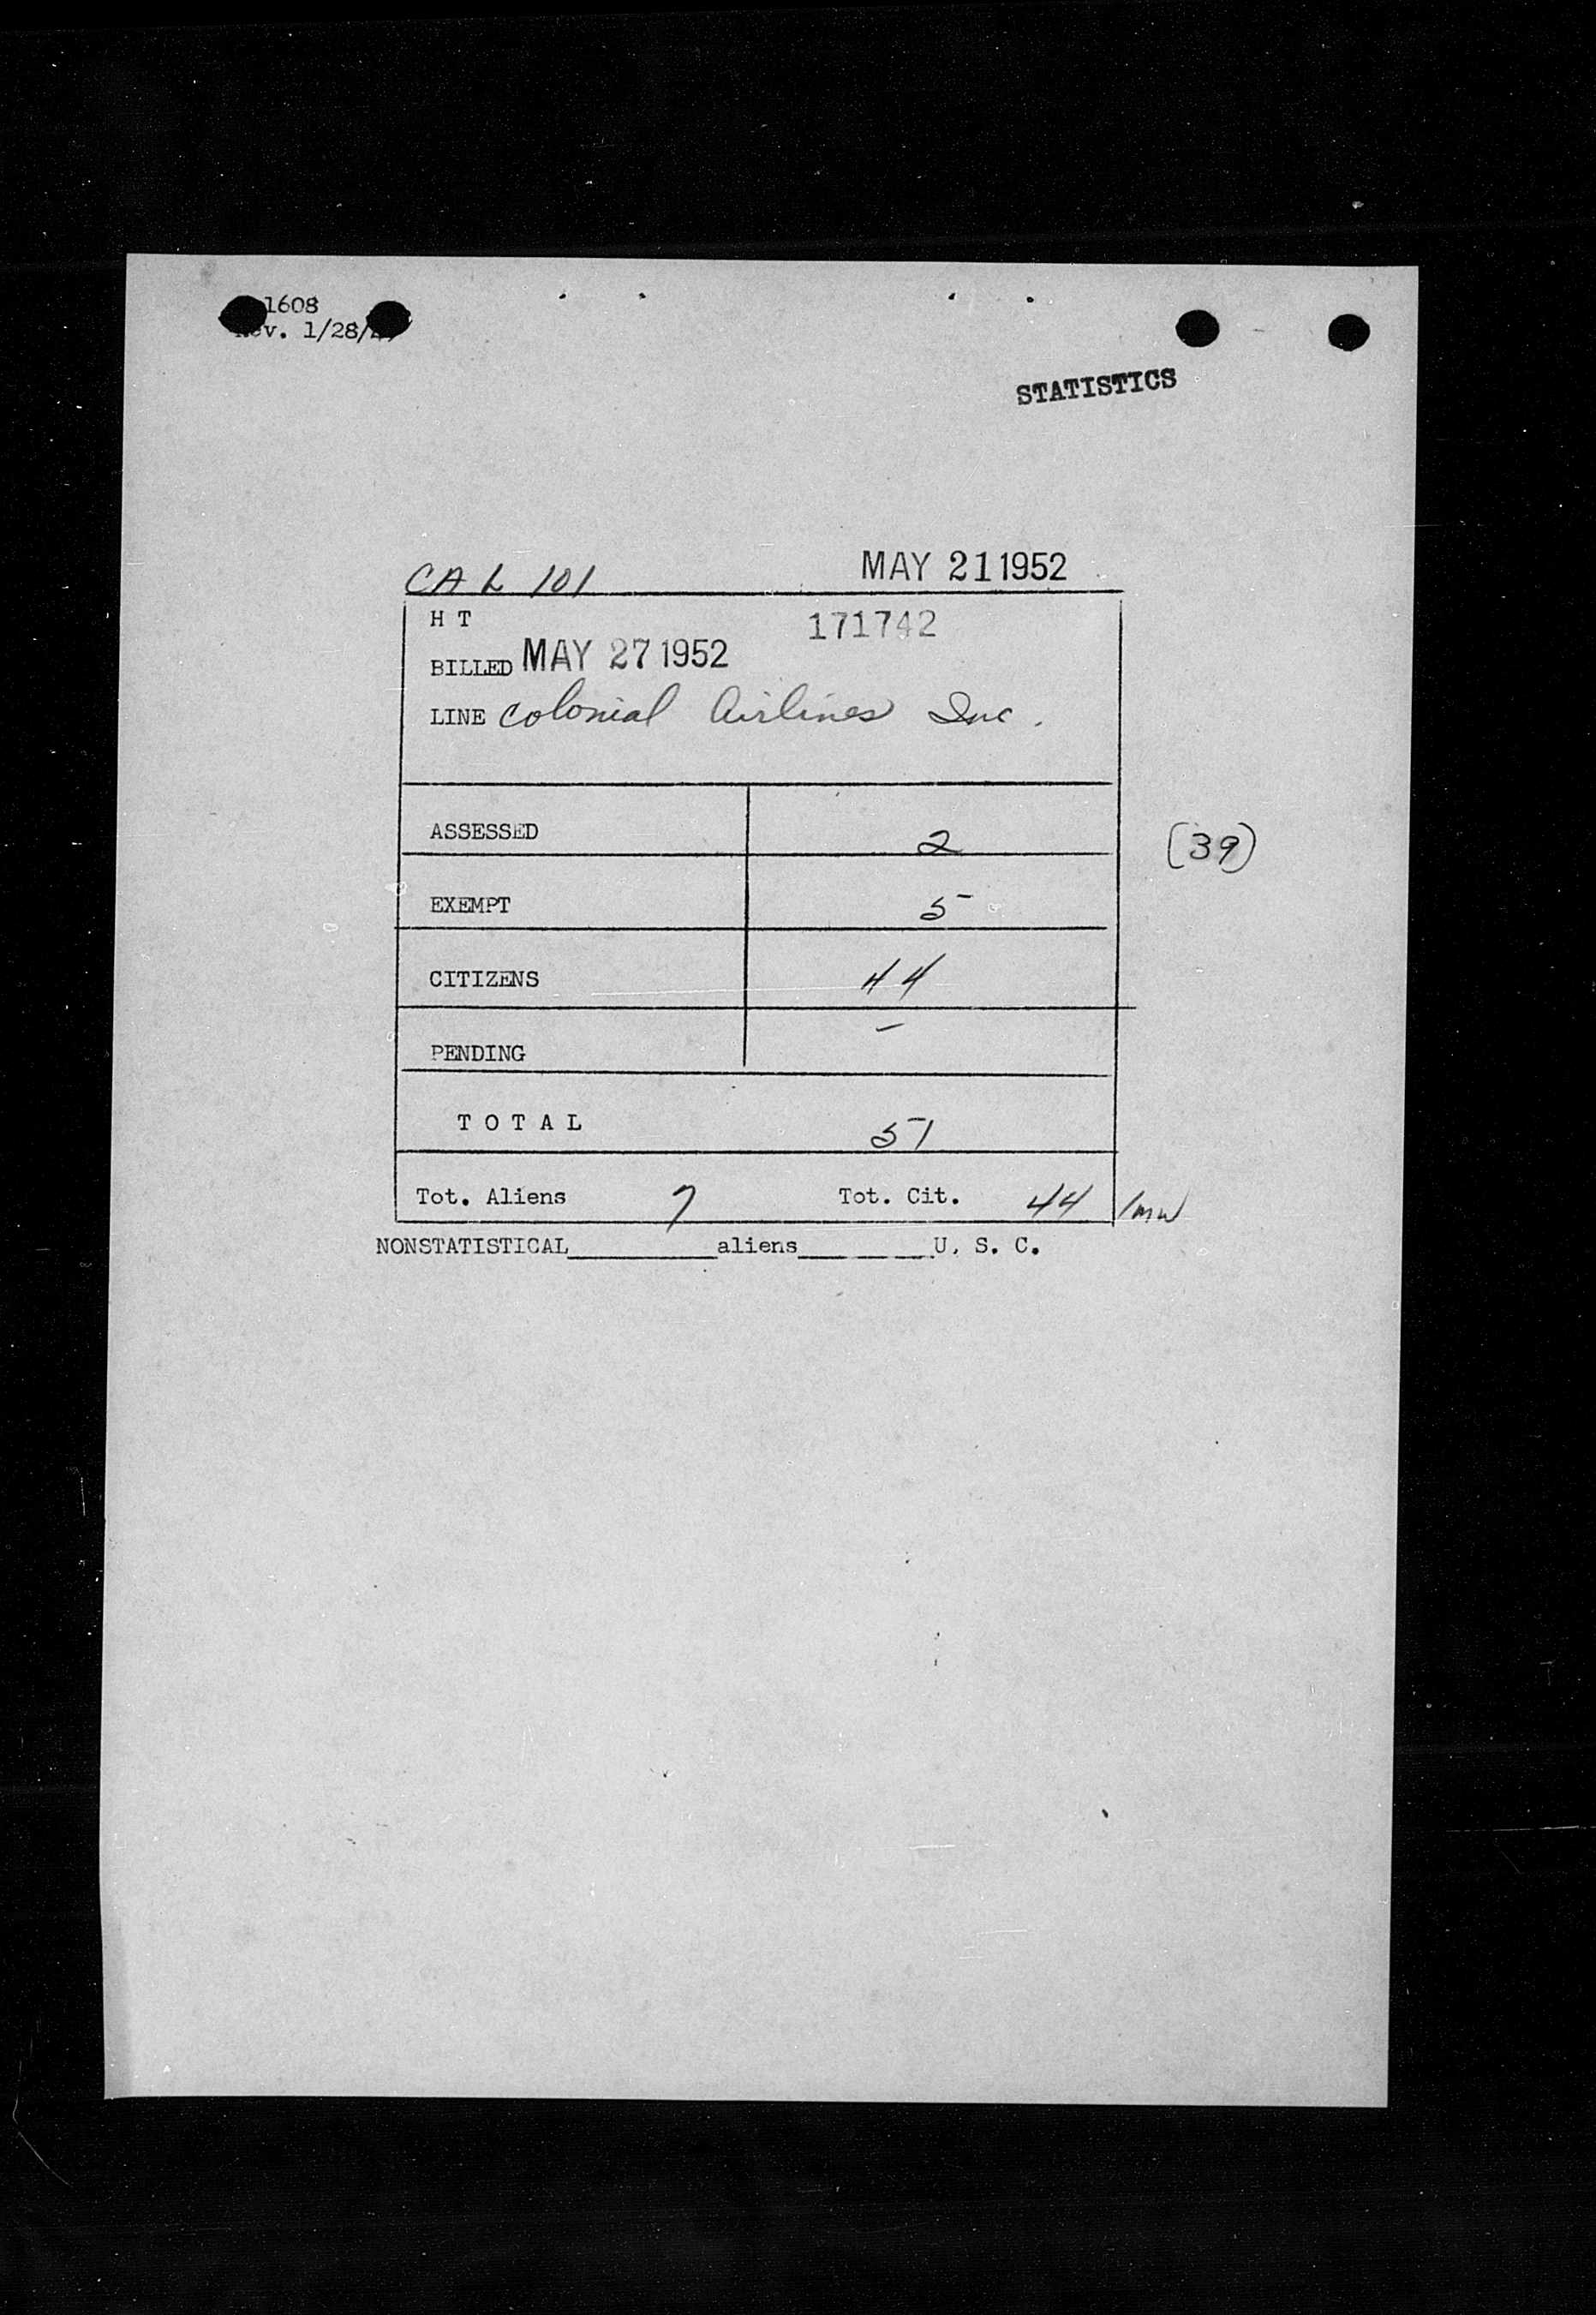 1608
v. 1/28/
STATISTICS
CAL 101 MAY 21 1952
H T 171742
BILLED MAY 27 1952
LINE Colonial Airlines Inc.
ASSESSED 2
(39)
EXEMPT 5
CITIZENS 44
PENDING –
TOTAL 51
Tot. Aliens 7 Tot. Cit. 44 /mw
NONSTATISTICAL_________aliens________U. S. C.